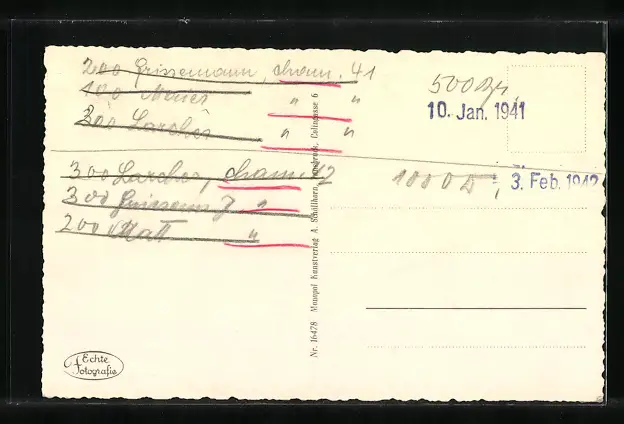 200 Grissemann, cham. 41
100 " "
300 Larcher " "
300 Larcher, cham. 42
300 "
200 Matt "
500
10. Jan. 1941
1000
3. Feb. 1942
Nr. 16478 Monopol Kunstverlag A. Schillhorn, Innsbruck, Colingasse 6
Echte
Fotografie